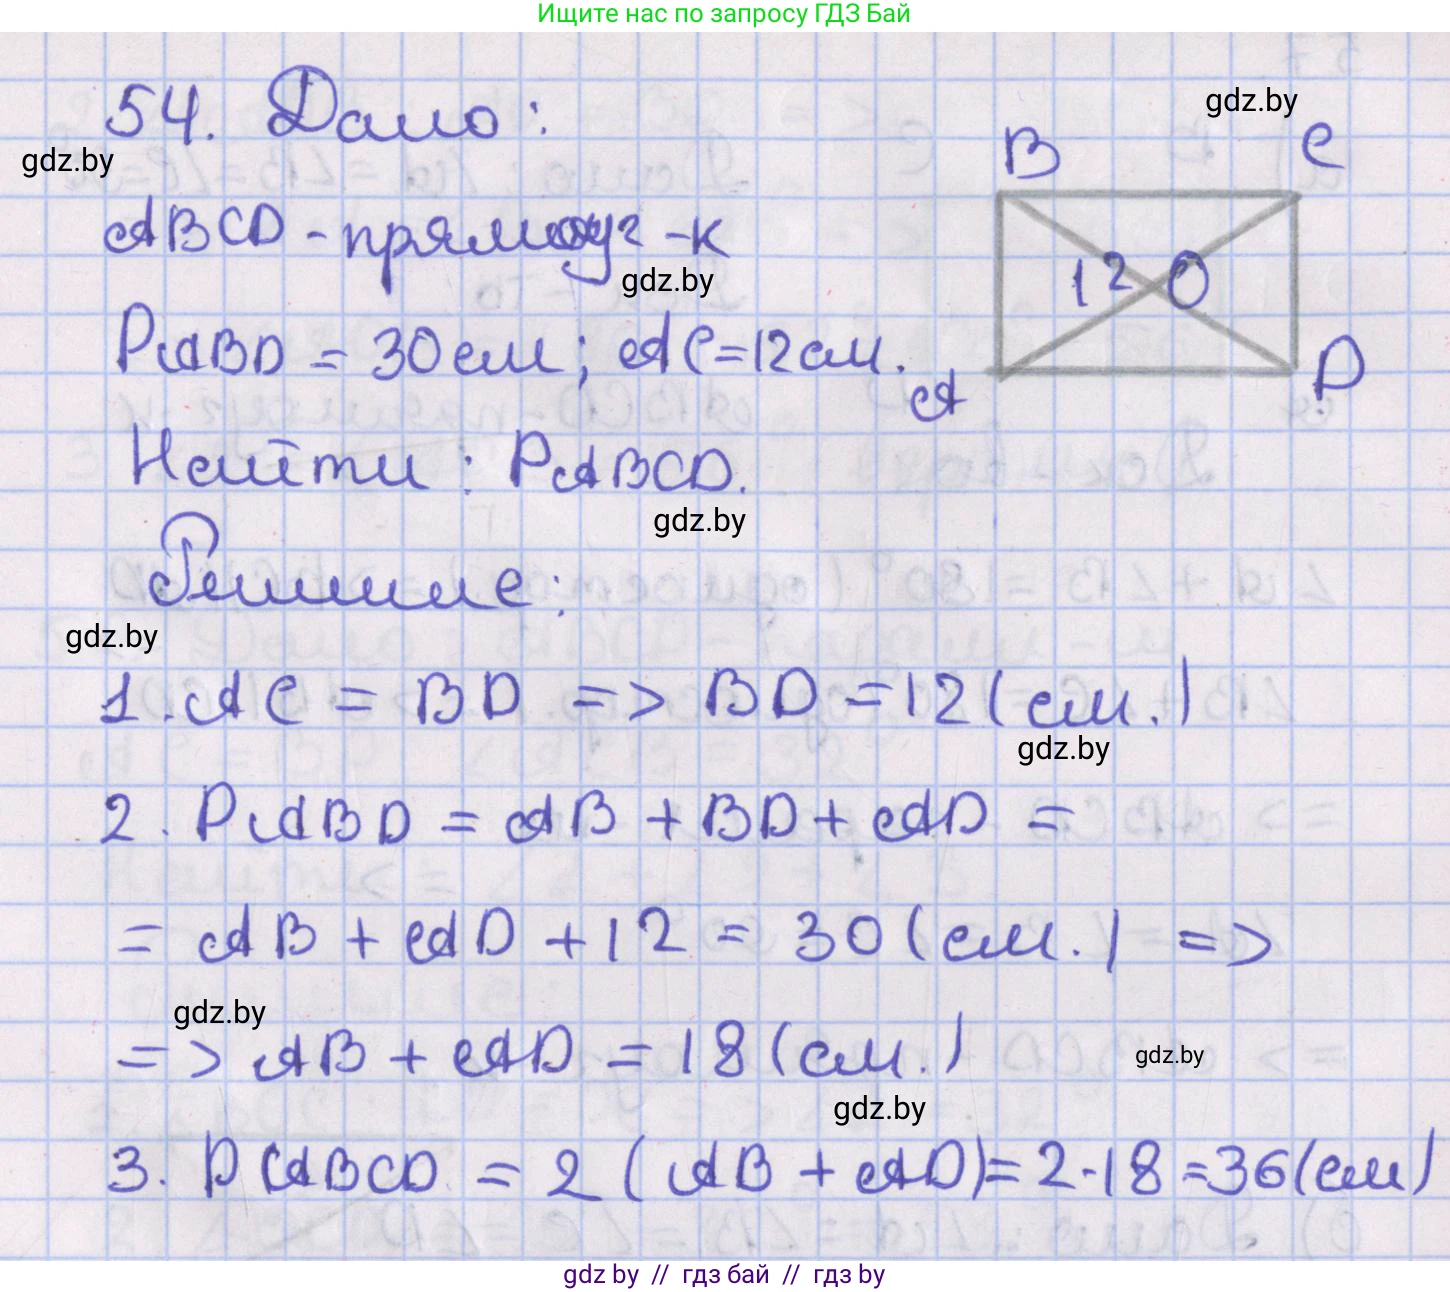 Ищите нас по запросу ГДЗ Бай
54. Дано:
gdz.by
gdz.by
B C
ABCD - прямоуг-к
gdz.by
12 O
PABD = 30 см; AC = 12 см.
A D
Найти: PABCD.
gdz.by
Решение:
gdz.by
1. AC = BD => BD = 12 (см.)
gdz.by
2. PABD = AB + BD + AD =
= AB + AD + 12 = 30 (см.) =>
gdz.by
=> AB + AD = 18 (см.)
gdz.by
gdz.by
3. PABCD = 2 (AB + AD) = 2·18 = 36 (см)
gdz by // гдз бай // гдз by